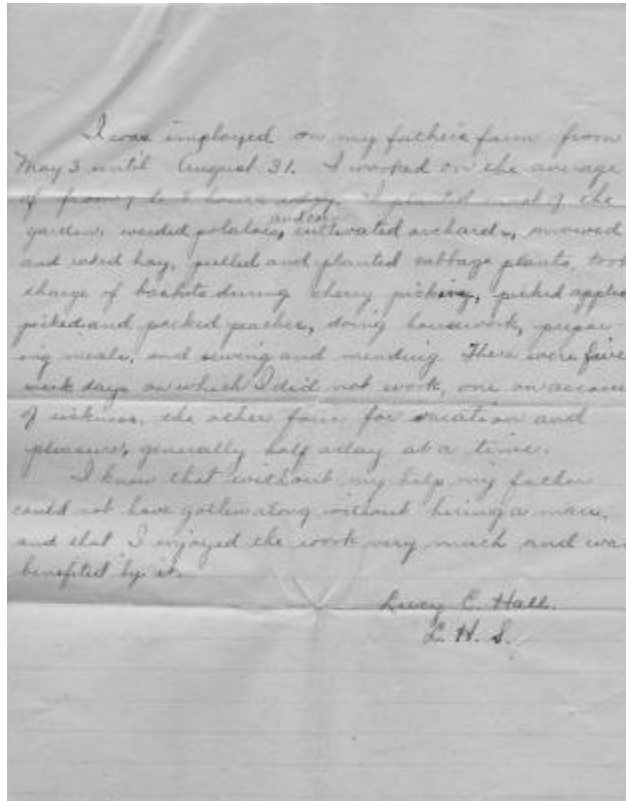 I was imployed on my father's farm from
May 3 until August 31. I worked on the average
of from 7 to 8 hours a day. I planted most of the
garden, weeded potatoes, and corn, cultivated orchards, mowed
and raked hay, pulled and planted cabbage plants, took
charge of baskets during cherry picking, picked apples
picked and packed peaches, doing housework, prepar-
ing meals, and sewing and mending. There were five
week days on which I did not work, one on accoun
of sickness, the other four for vacation and
pleasure, generally half a day at a time.
I know that without my help my father
could not have gotten along without hiring a man,
and that I enjoyed the work very much and was
benefited by it.
Lucy E. Hall.
L. H. S.